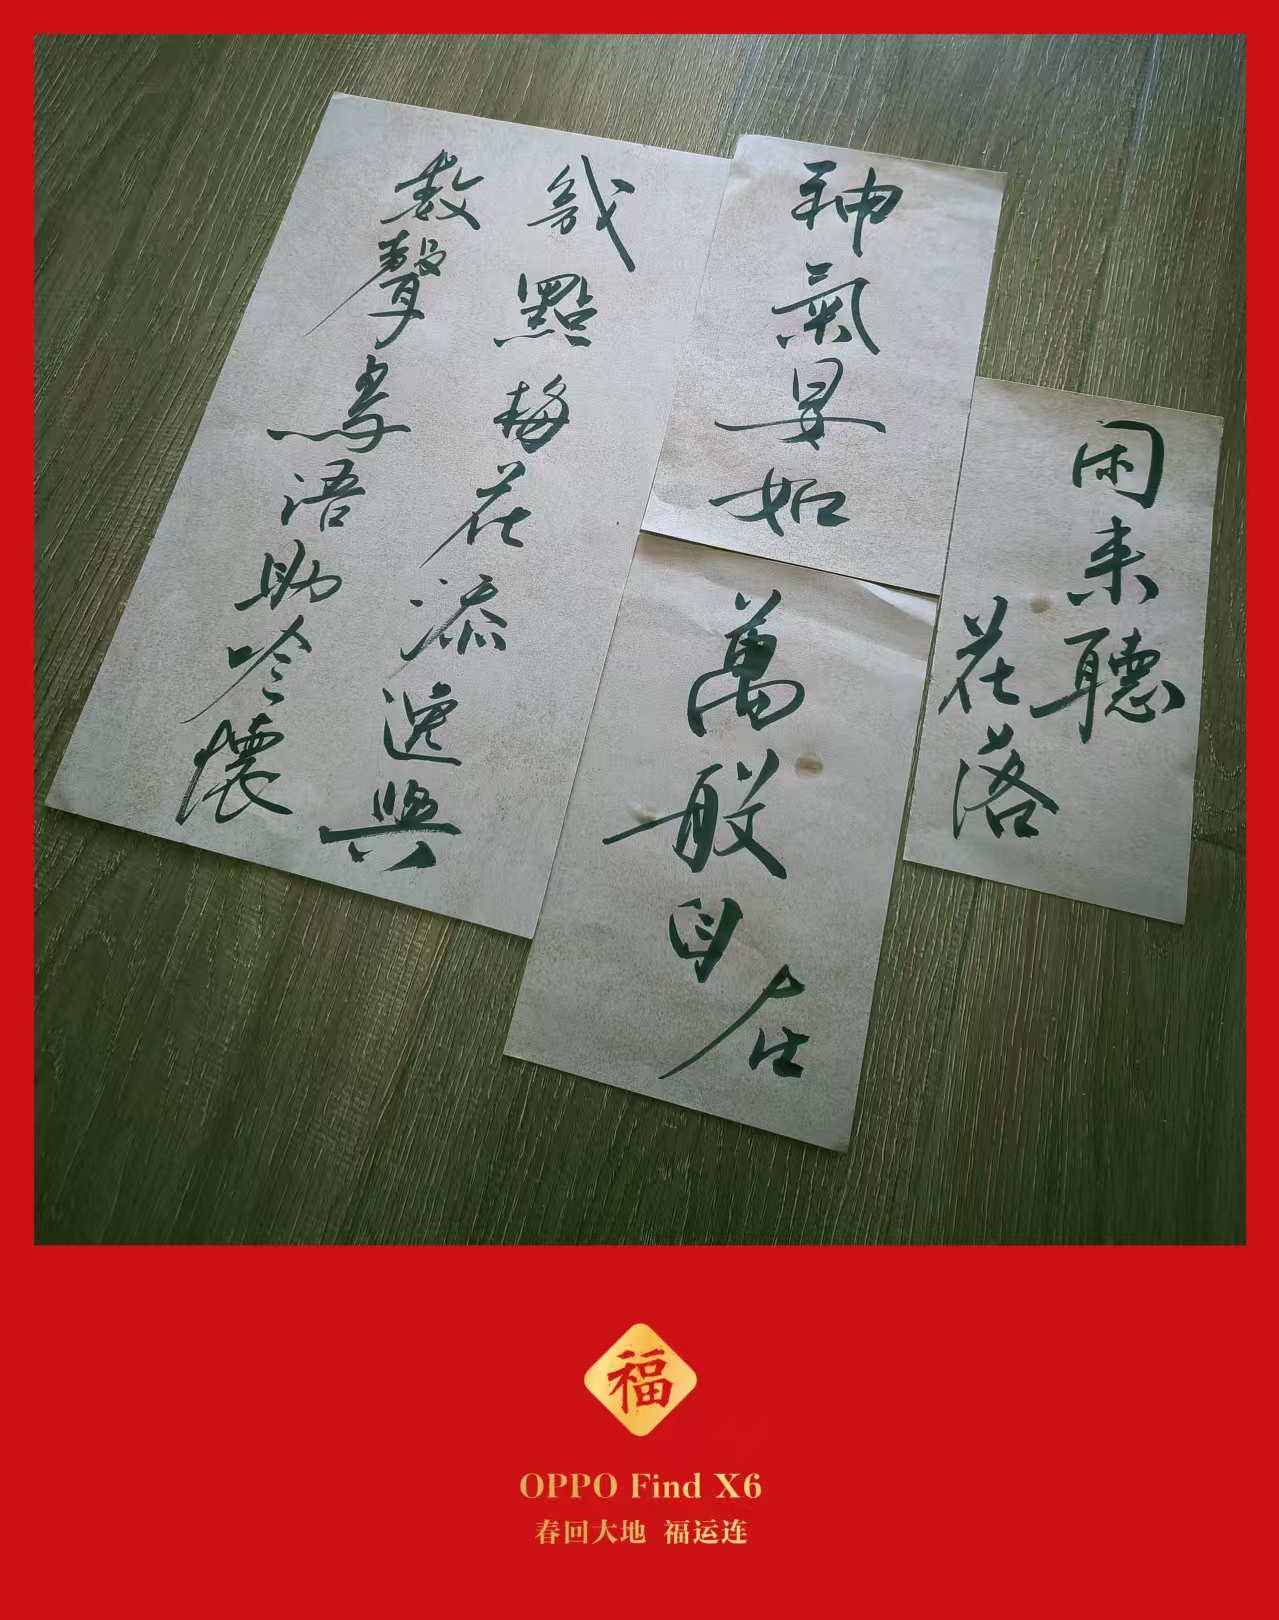 幾點梅花添逸興
數聲鳥語助吟懷
神氣晏如
萬般自在
闲来聽
花落
福
OPPO Find X6
春回大地 福运连